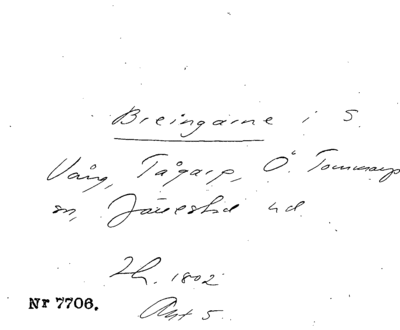 Breingarne i S.
Vång, Tågarp, Ö. Tommarp
sn, Järrestad hd
Lh. 1802
Nr 7706.
Akt 5